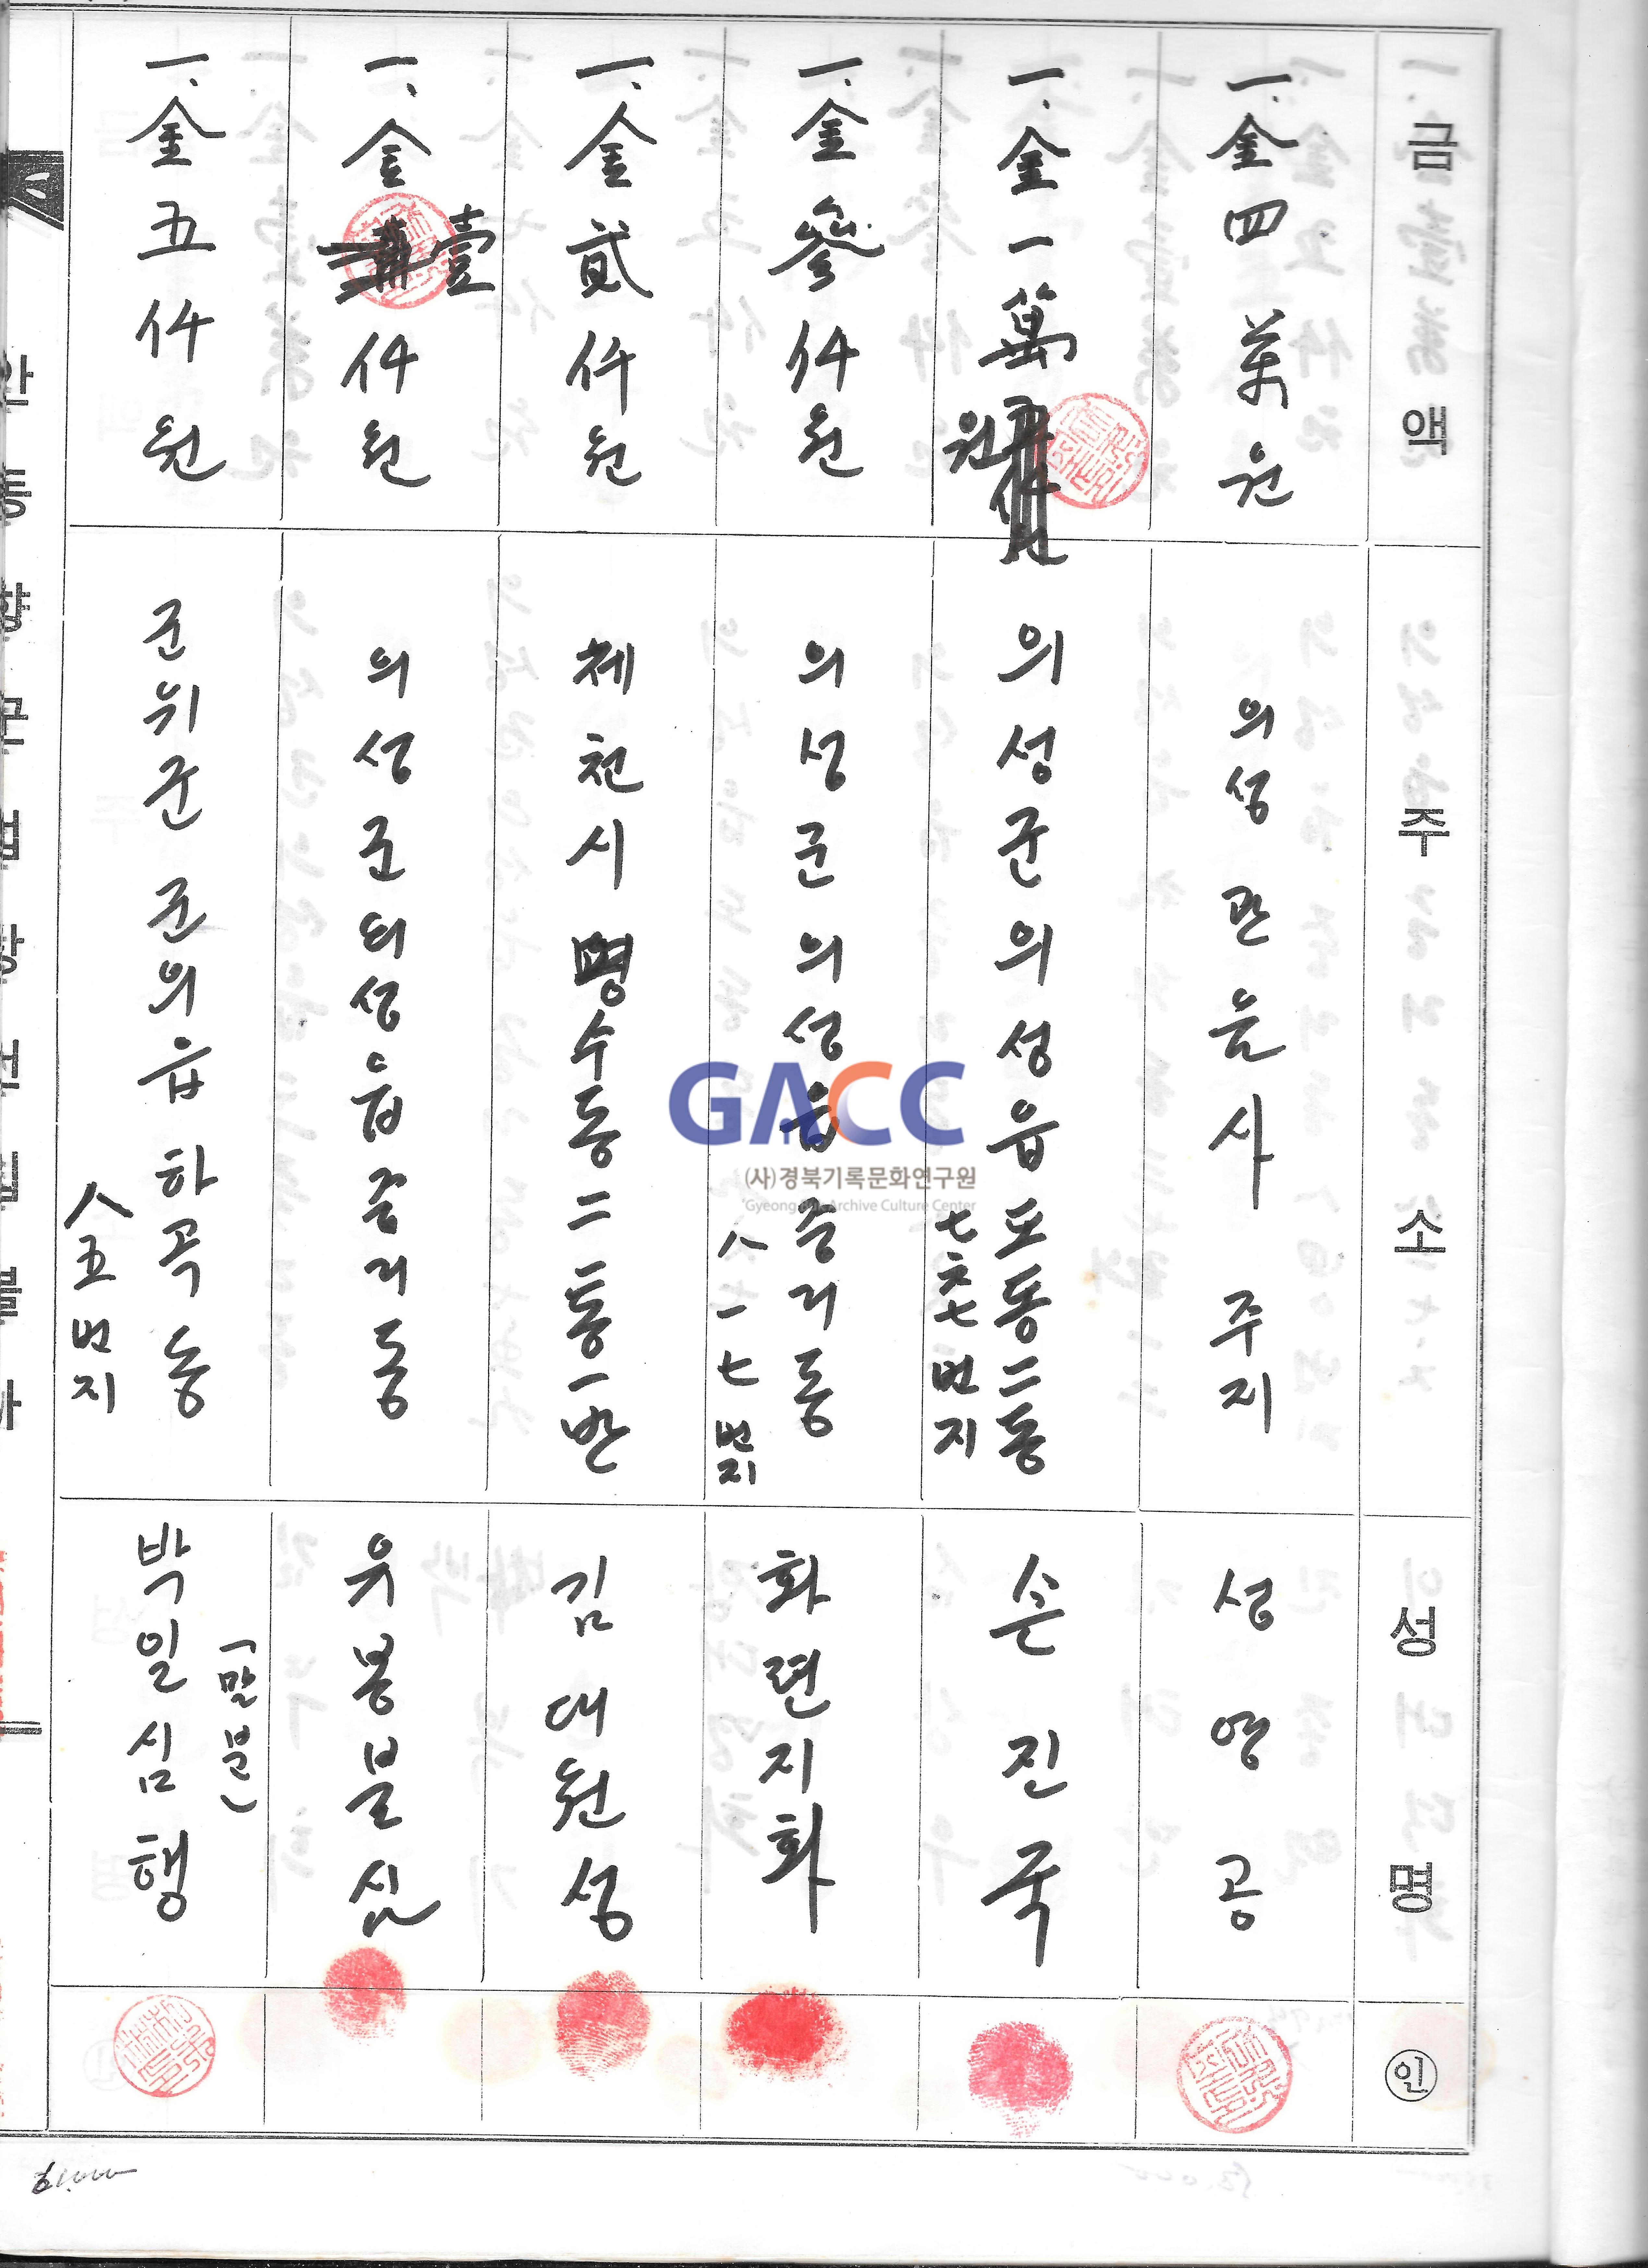 금액 주소 성명 ㊞
一. 金 四 萬 원
의성 관음사 주지
성영공
一. 金 一 萬 원
의성군 의성읍 도동 二동
七六七번지
손진국
一. 金 參 仟 원
의성군 의성읍 중리동
八一七번지
화련지화
一. 金 貳 仟 원
제천시 명수동 二통 一반
김대원성
一. 金 壹 仟 원
의성군 의성읍 중리동
유봉불심
一. 金 五 仟 원
군위군 군위읍 하곡동
八五번지
(말분)
박일심행
61,000
GACC
(사)경북기록문화연구원
Gyeong Buk Archive Culture Center